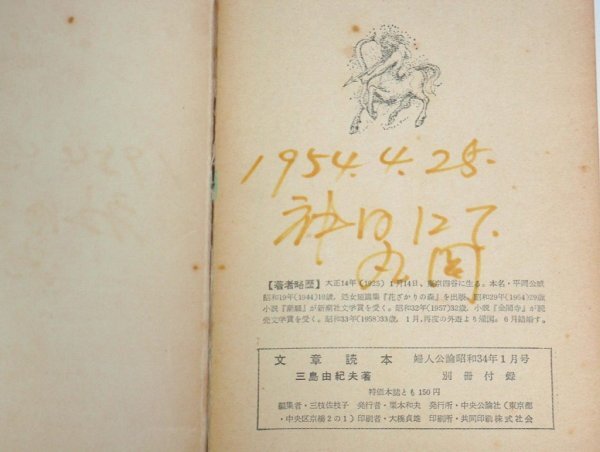 1954.4.25.
神田にて
【著者略歴】大正14年(1925)1月14日、東京四谷に生る。本名・平岡公威
昭和19年(1944)19歳、処女短篇集『花ざかりの森』を出版。昭和29年(1954)29歳
小説『潮騒』が新潮社文学賞を受く。昭和32年(1957)32歳、小説『金閣寺』が読
売文学賞を受く。昭和33年(1958)33歳、1月、再度の外遊より帰国。6月結婚す。
文章読本 婦人公論昭和34年1月号
三島由紀夫著 別冊付録
特価本誌とも150円
編集者・三枝佐枝子 発行者・栗本和夫 発行所・中央公論社(東京都
・中央区京橋2の1)印刷者・大橋貞雄 印刷所・共同印刷株式会社